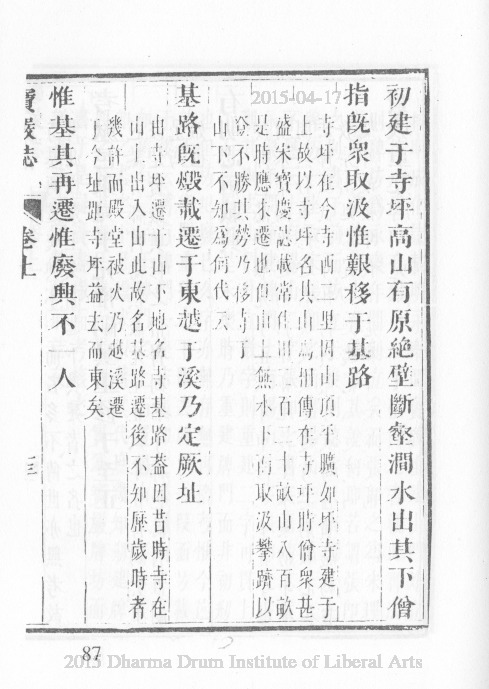 2015-04-17
初建于寺坪高山有原絶壁斷壑澗水出其下僧
指旣衆取汲惟艱移于基路
寺坪在今寺西二里因山頂平曠如坪寺建于
上故以寺坪名其山爲相傳在寺坪時僧衆甚
盛宋寶慶誌載常住田三百五十畝山八百畝
是時應未遷也但山上無水下而取汲攀躋以
登不勝其勞乃移寺于
山下不知爲何代云
基路旣燬載遷于東越于溪乃定厥址
由寺坪遷于山下地名寺基路葢因昔時寺在
山上出入由此故名基路遷後不知歷歲時者
幾許而殿堂被火乃越溪遷
于今址距寺坪益去而東矣
惟基其再遷惟廢興不一人
寶嚴誌
卷上
三
87
2015 Dharma Drum Institute of Liberal Arts